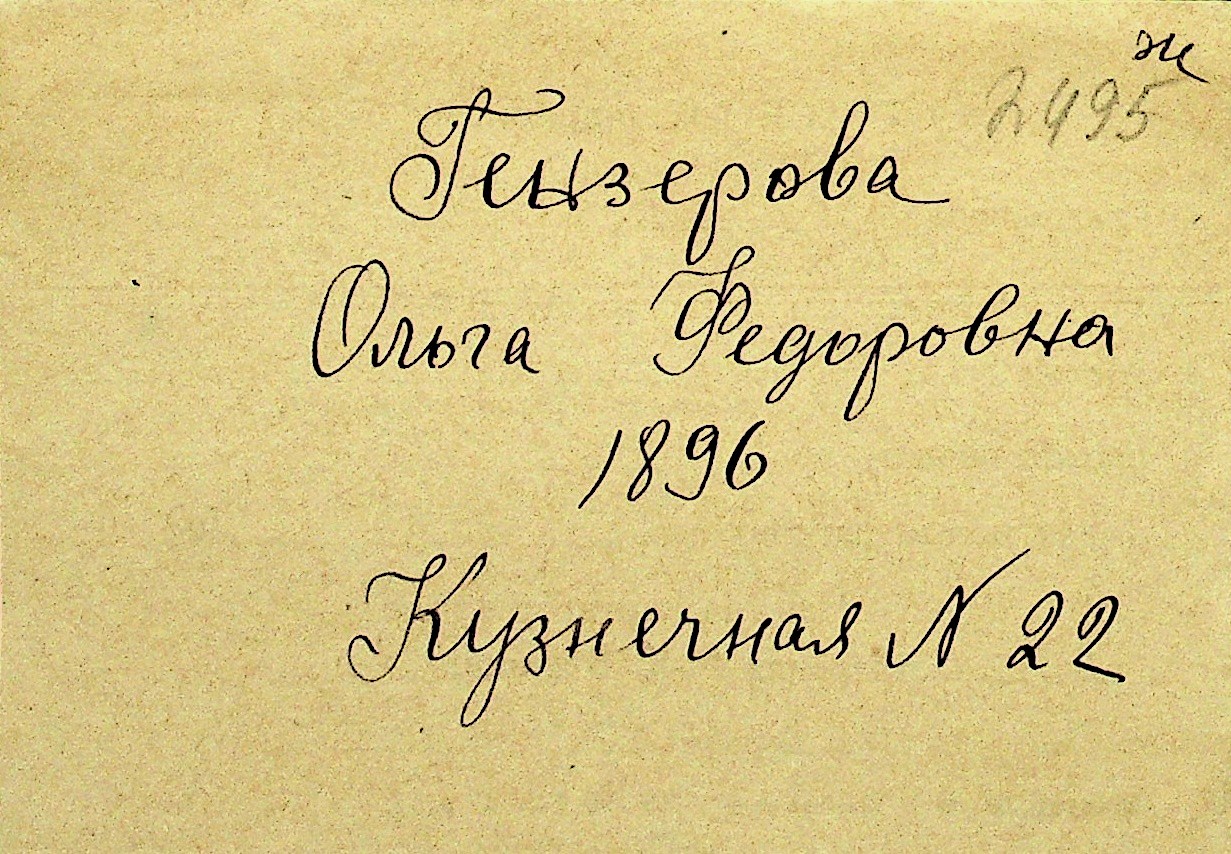 ж
2495
Гензерова
Ольга Федоровна
1896
Кузнечная N 22